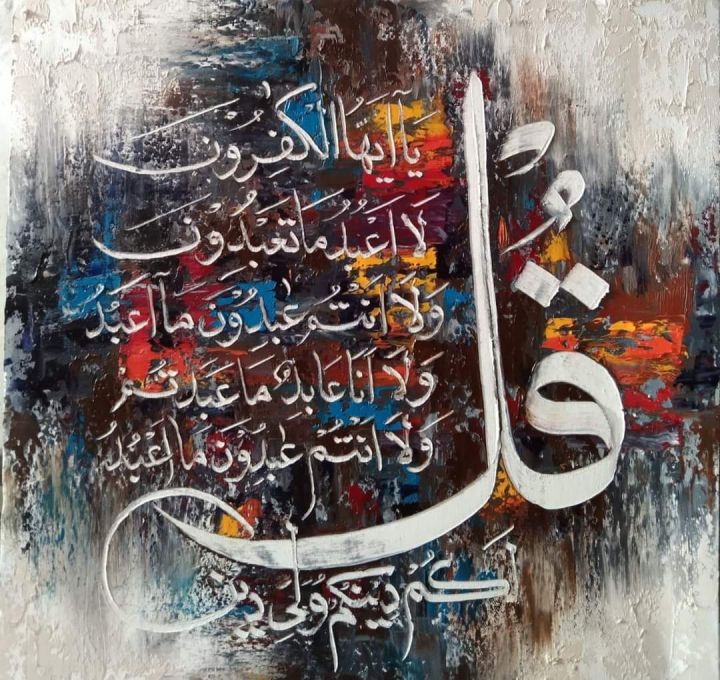 قُلْ
يَآ اَيُّهَا الْكٰفِرُوْنَ
لَا اَعْبُدُ مَا تَعْبُدُوْنَ
وَلَا اَنْتُمْ عٰبِدُوْنَ مَا اَعْبُدُ
وَلَا اَنَا عَابِدٌ مَا عَبَدْتُمْ
وَلَا اَنْتُمْ عٰبِدُوْنَ مَا اَعْبُدُ
لَكُمْ دِيْنُكُمْ وَلِيَ دِيْنِ